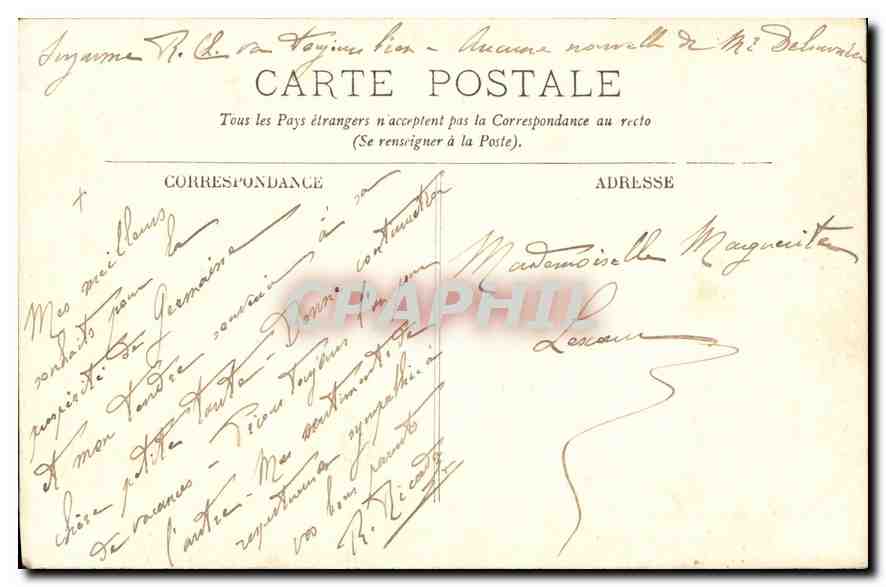 Suzanne R. Ch. va toujours bien - Aucune nouvelle de Mr
CARTE POSTALE
Tous les Pays étrangers n'acceptent pas la Correspondance au recto
(Se renseigner à la Poste).
CORRESPONDANCE
ADRESSE
+
Mes meilleurs
souhaits pour la
prospérité de Germaine
et mon tendre souvenir à sa
chère petite tante - Bonne continuation
de vacances - toujours
l'autre - Mes sentiments de
respectueuse sympathie à
vos bons parents
R. Ricard
Mademoiselle Marguerite
CPAPHIL